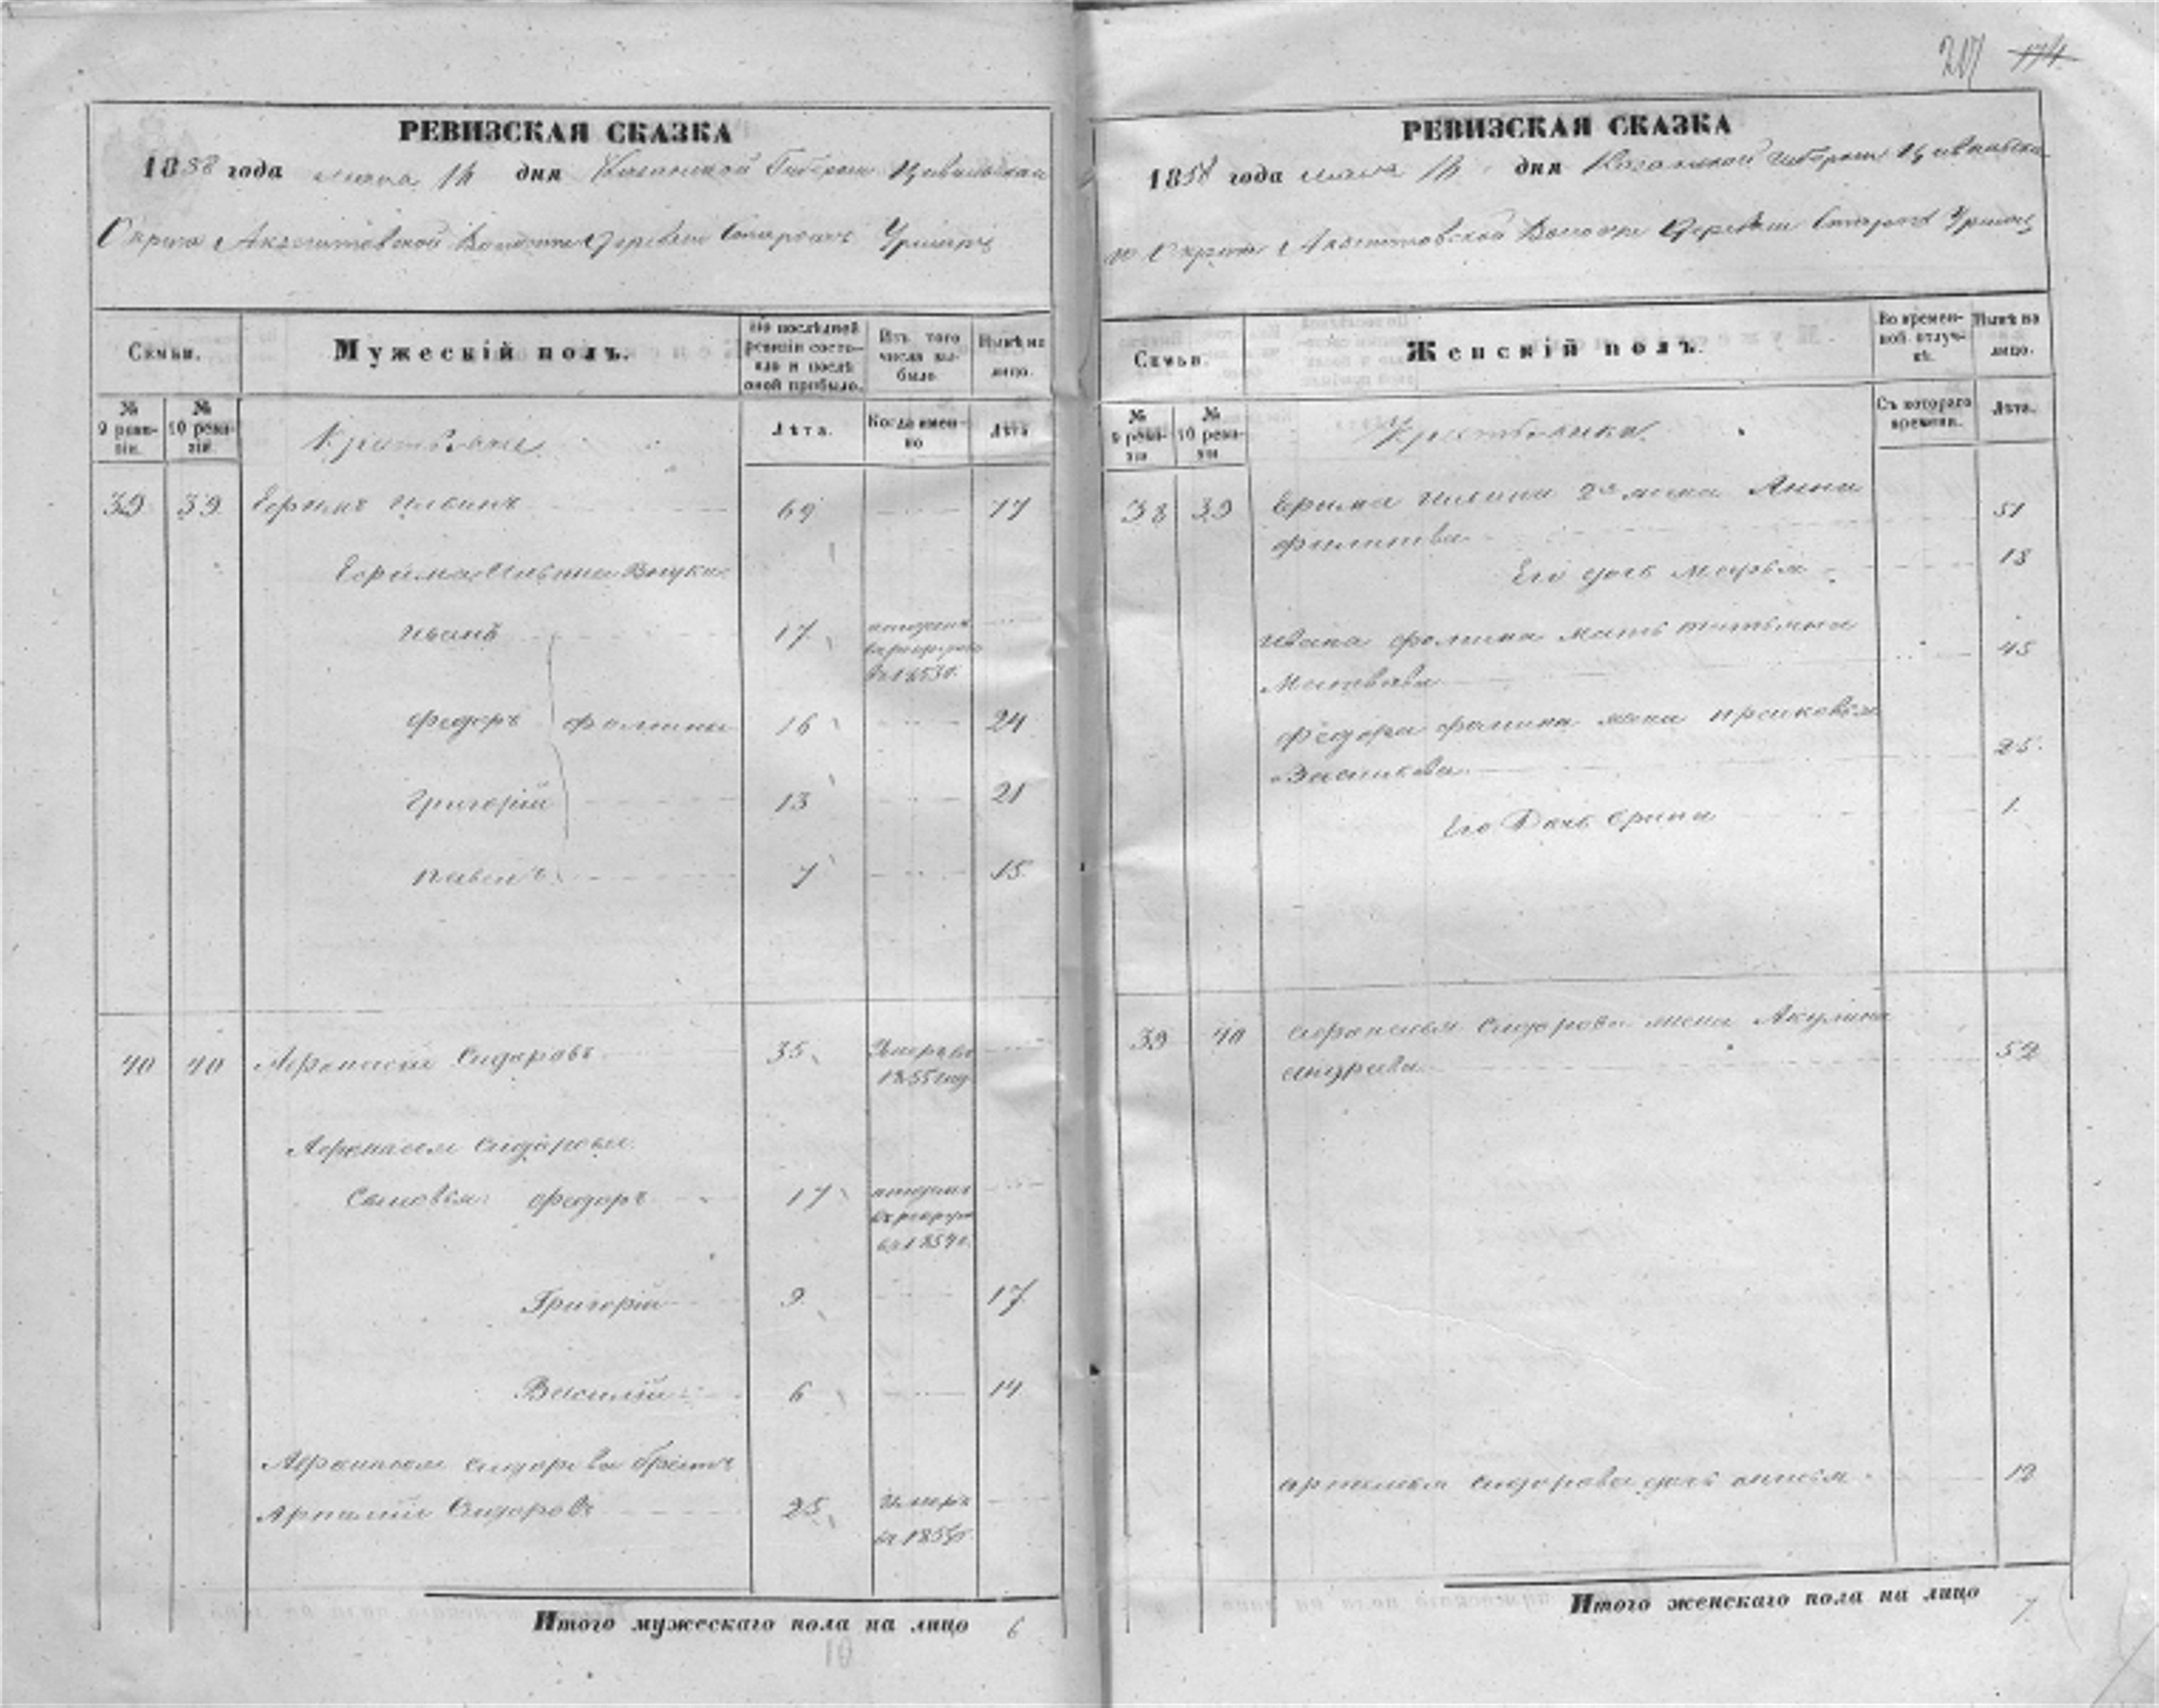 217 174
РЕВИЗСКАЯ СКАЗКА
1858 года мая 14 дня Казанской Губернии Цивильскаго
Округа Акзегитовской Волости Деревни Старыхъ Урмаръ
Семьи.
Мужескій полъ.
По послѣдней ревизіи состояло и послѣ оной прибыло.
Изъ того числа выбыло.
Нынѣ на лицо.
№ 9 ревизіи.
№ 10 ревизіи.
Крестьяне
Лѣта.
Когда именно
Лѣта
39 39 Ефимъ Ильинъ 69 77
Ефима Ильина Внуки
Иванъ 17
въ 1853 г.
Федоръ Фомины 16 24
Григорій 13 21
Павелъ 7 15
40 40 Афанасій Сидоровъ 35 Умеръ въ
1855 году
Афанасья Сидорова
Сыновья Федоръ 17
въ 1854 г.
Григорій 9 17
Василій 6 14
Афанасья Сидорова братъ
Арталій Сидоровъ 25 Умеръ
Итого мужескаго пола на лицо 6
РЕВИЗСКАЯ СКАЗКА
1858 года мая 14 дня Казанской Губерніи Цивильска
го Округа Акзегитовской Волости Деревни Старыхъ Урмаръ
Семьи.
Женскій полъ.
Во временной отлучкѣ.
Нынѣ на лицо.
№ 9 ревизіи
№ 10 ревизіи
Крестьянки
Съ котораго времени.
Лѣта.
38 39 Ефима Ильина 2я жена Анна
Филипова 51
Его дочь Марья 18
Ивана Фомина мать Татьяна
Матвѣева 45
Федора Фомина жена Прасковья
25
Его Дочь Ирина 1
39 40 Афанасья Сидорова жена Акулина
Андреева 52
Арталья Сидорова дочь 12
Итого женскаго пола на лицо 7